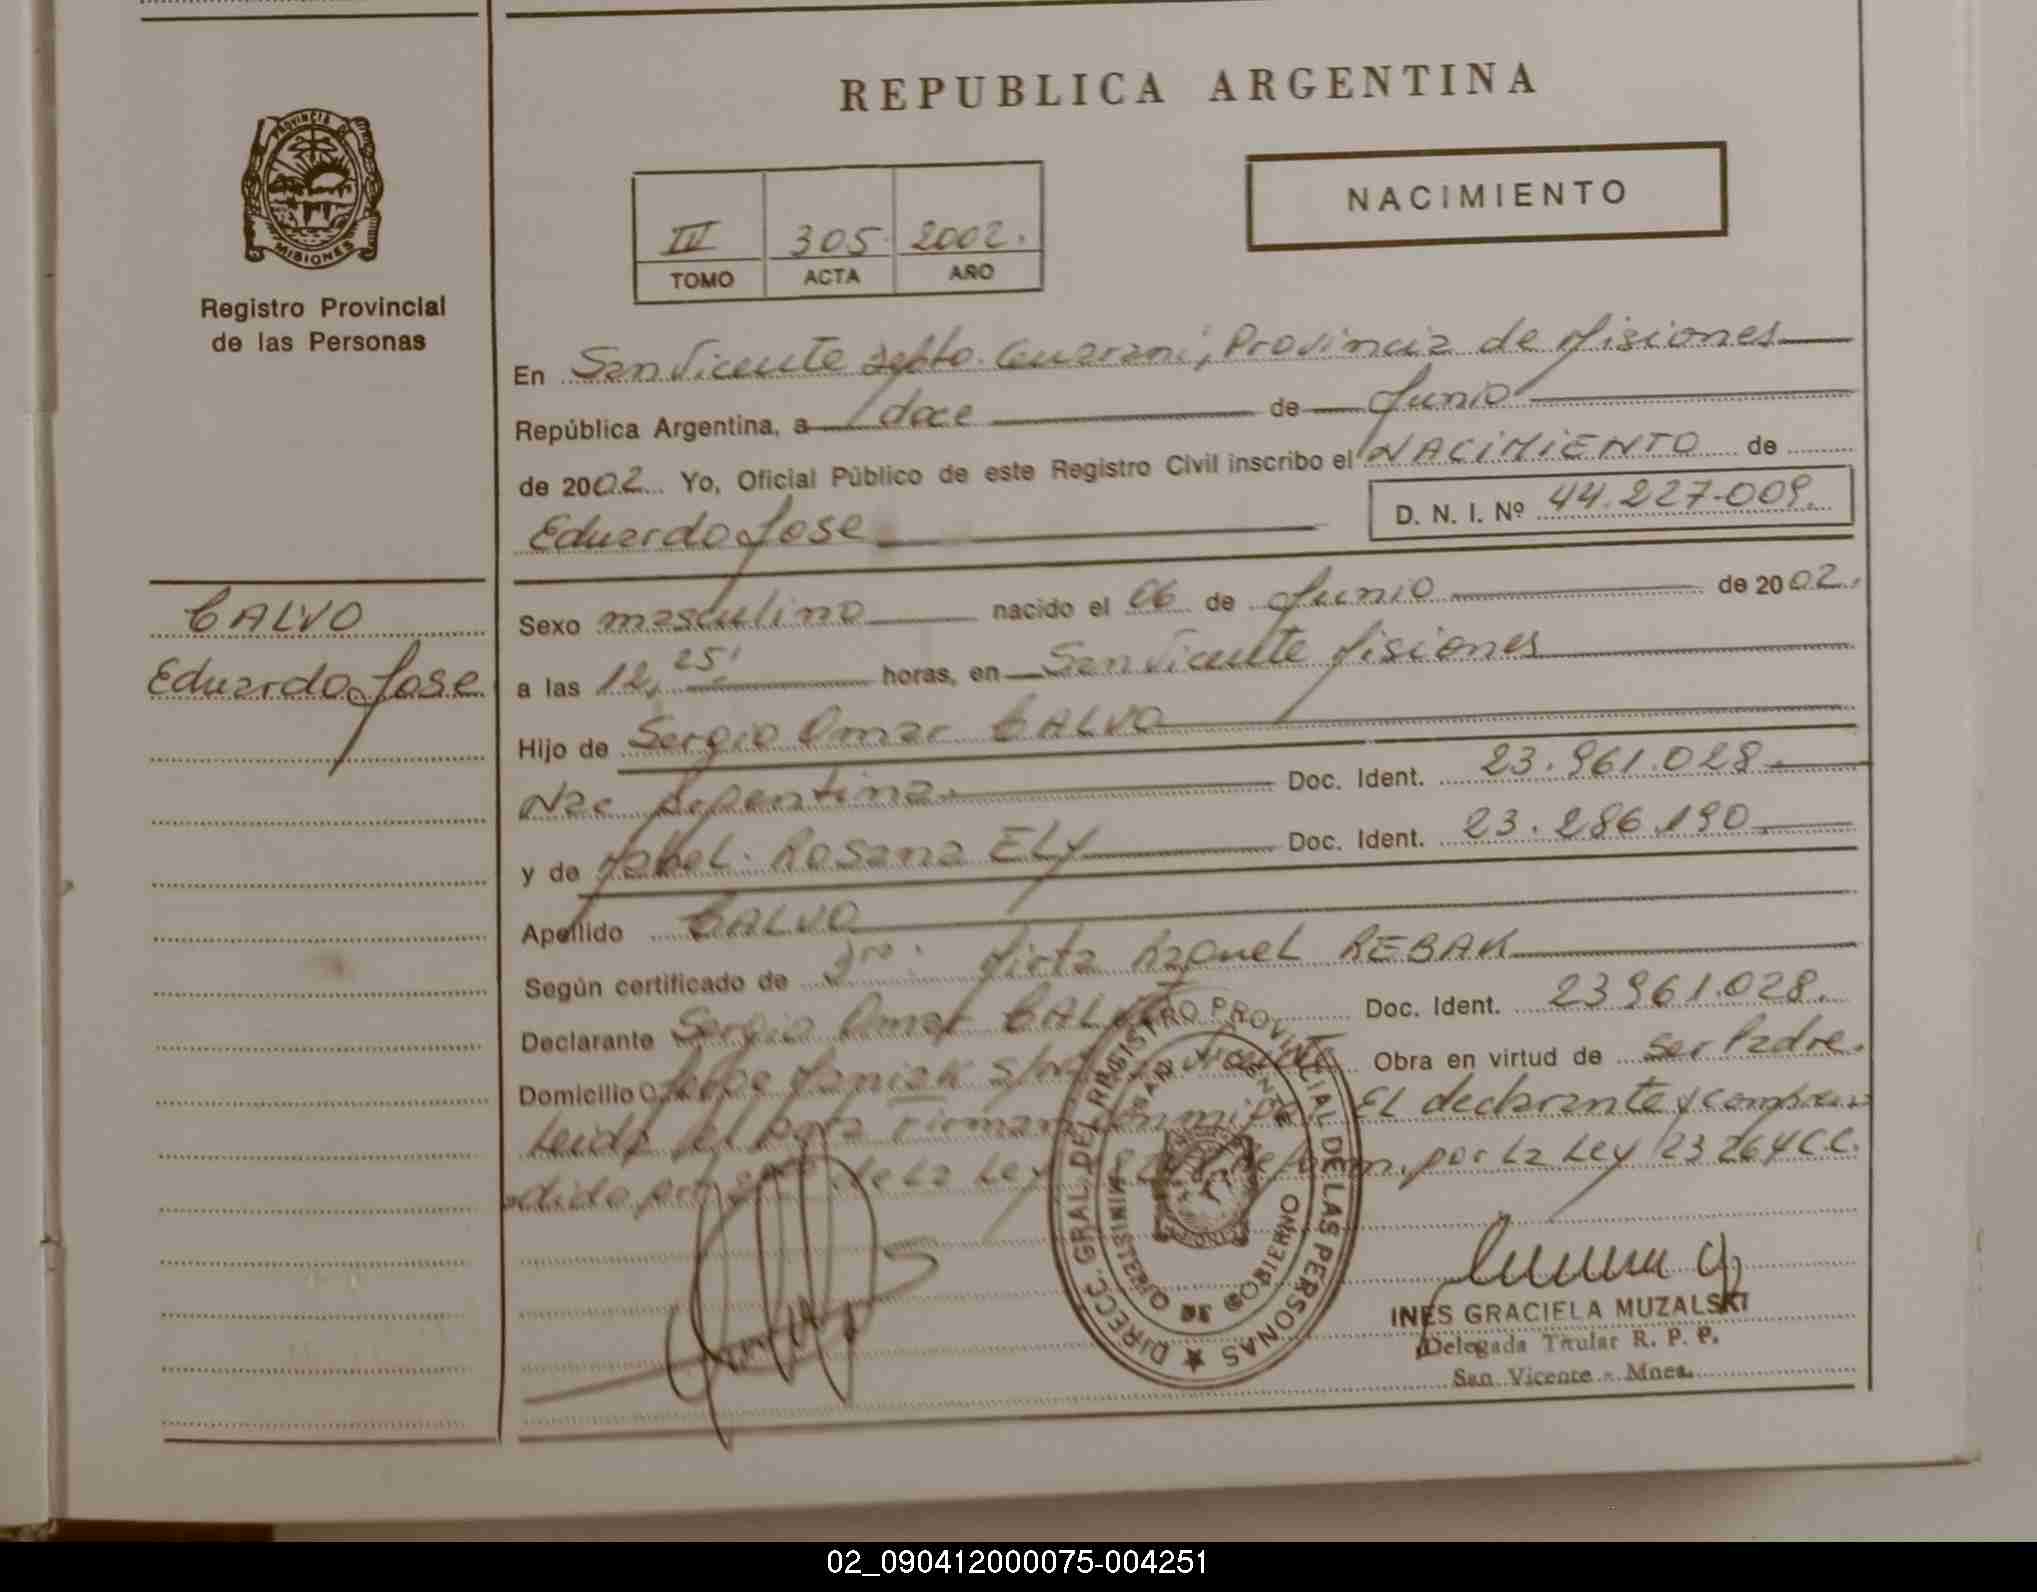 PROVINCIA DE
MISIONES
Registro Provincial
de las Personas
CALVO
Eduardo Jose
REPUBLICA ARGENTINA
NACIMIENTO
III 305 2002.
TOMO ACTA AÑO
En San Vicente Depto. Guarani, Provincia de Misiones
República Argentina, a doce de Junio
de 2002 Yo, Oficial Público de este Registro Civil inscribo el NACIMIENTO de
Eduardo Jose D. N. I. Nº 44.227.009.
Sexo masculino nacido el 06 de Junio de 2002.
a las 12,25' horas, en San Vicente Misiones
Hijo de Sergio Omar CALVO
Nac Argentina. Doc. Ident. 23.961.028
y de Mabel. Rosana ELY Doc. Ident. 23.286.190
Apellido CALVO
Según certificado de Dra: Mirta Raquel REBAK
Declarante Sergio Omar CALVO Doc. Ident. 23961.028.
Domicilio S/Nº Vicente Obra en virtud de ser Padre.
Leida el Acta firman conmigo El declarante y compren
dido de La Ley por La Ley 23264 C.C.
DIRECC. GRAL. DEL REGISTRO PROVINCIAL DE LAS PERSONAS
MINISTERIO DE GOBIERNO
SAN VICENTE
INES GRACIELA MUZALSKI
Delegada Titular R. P. P.
San Vicente - Mnes.
02_090412000075-004251